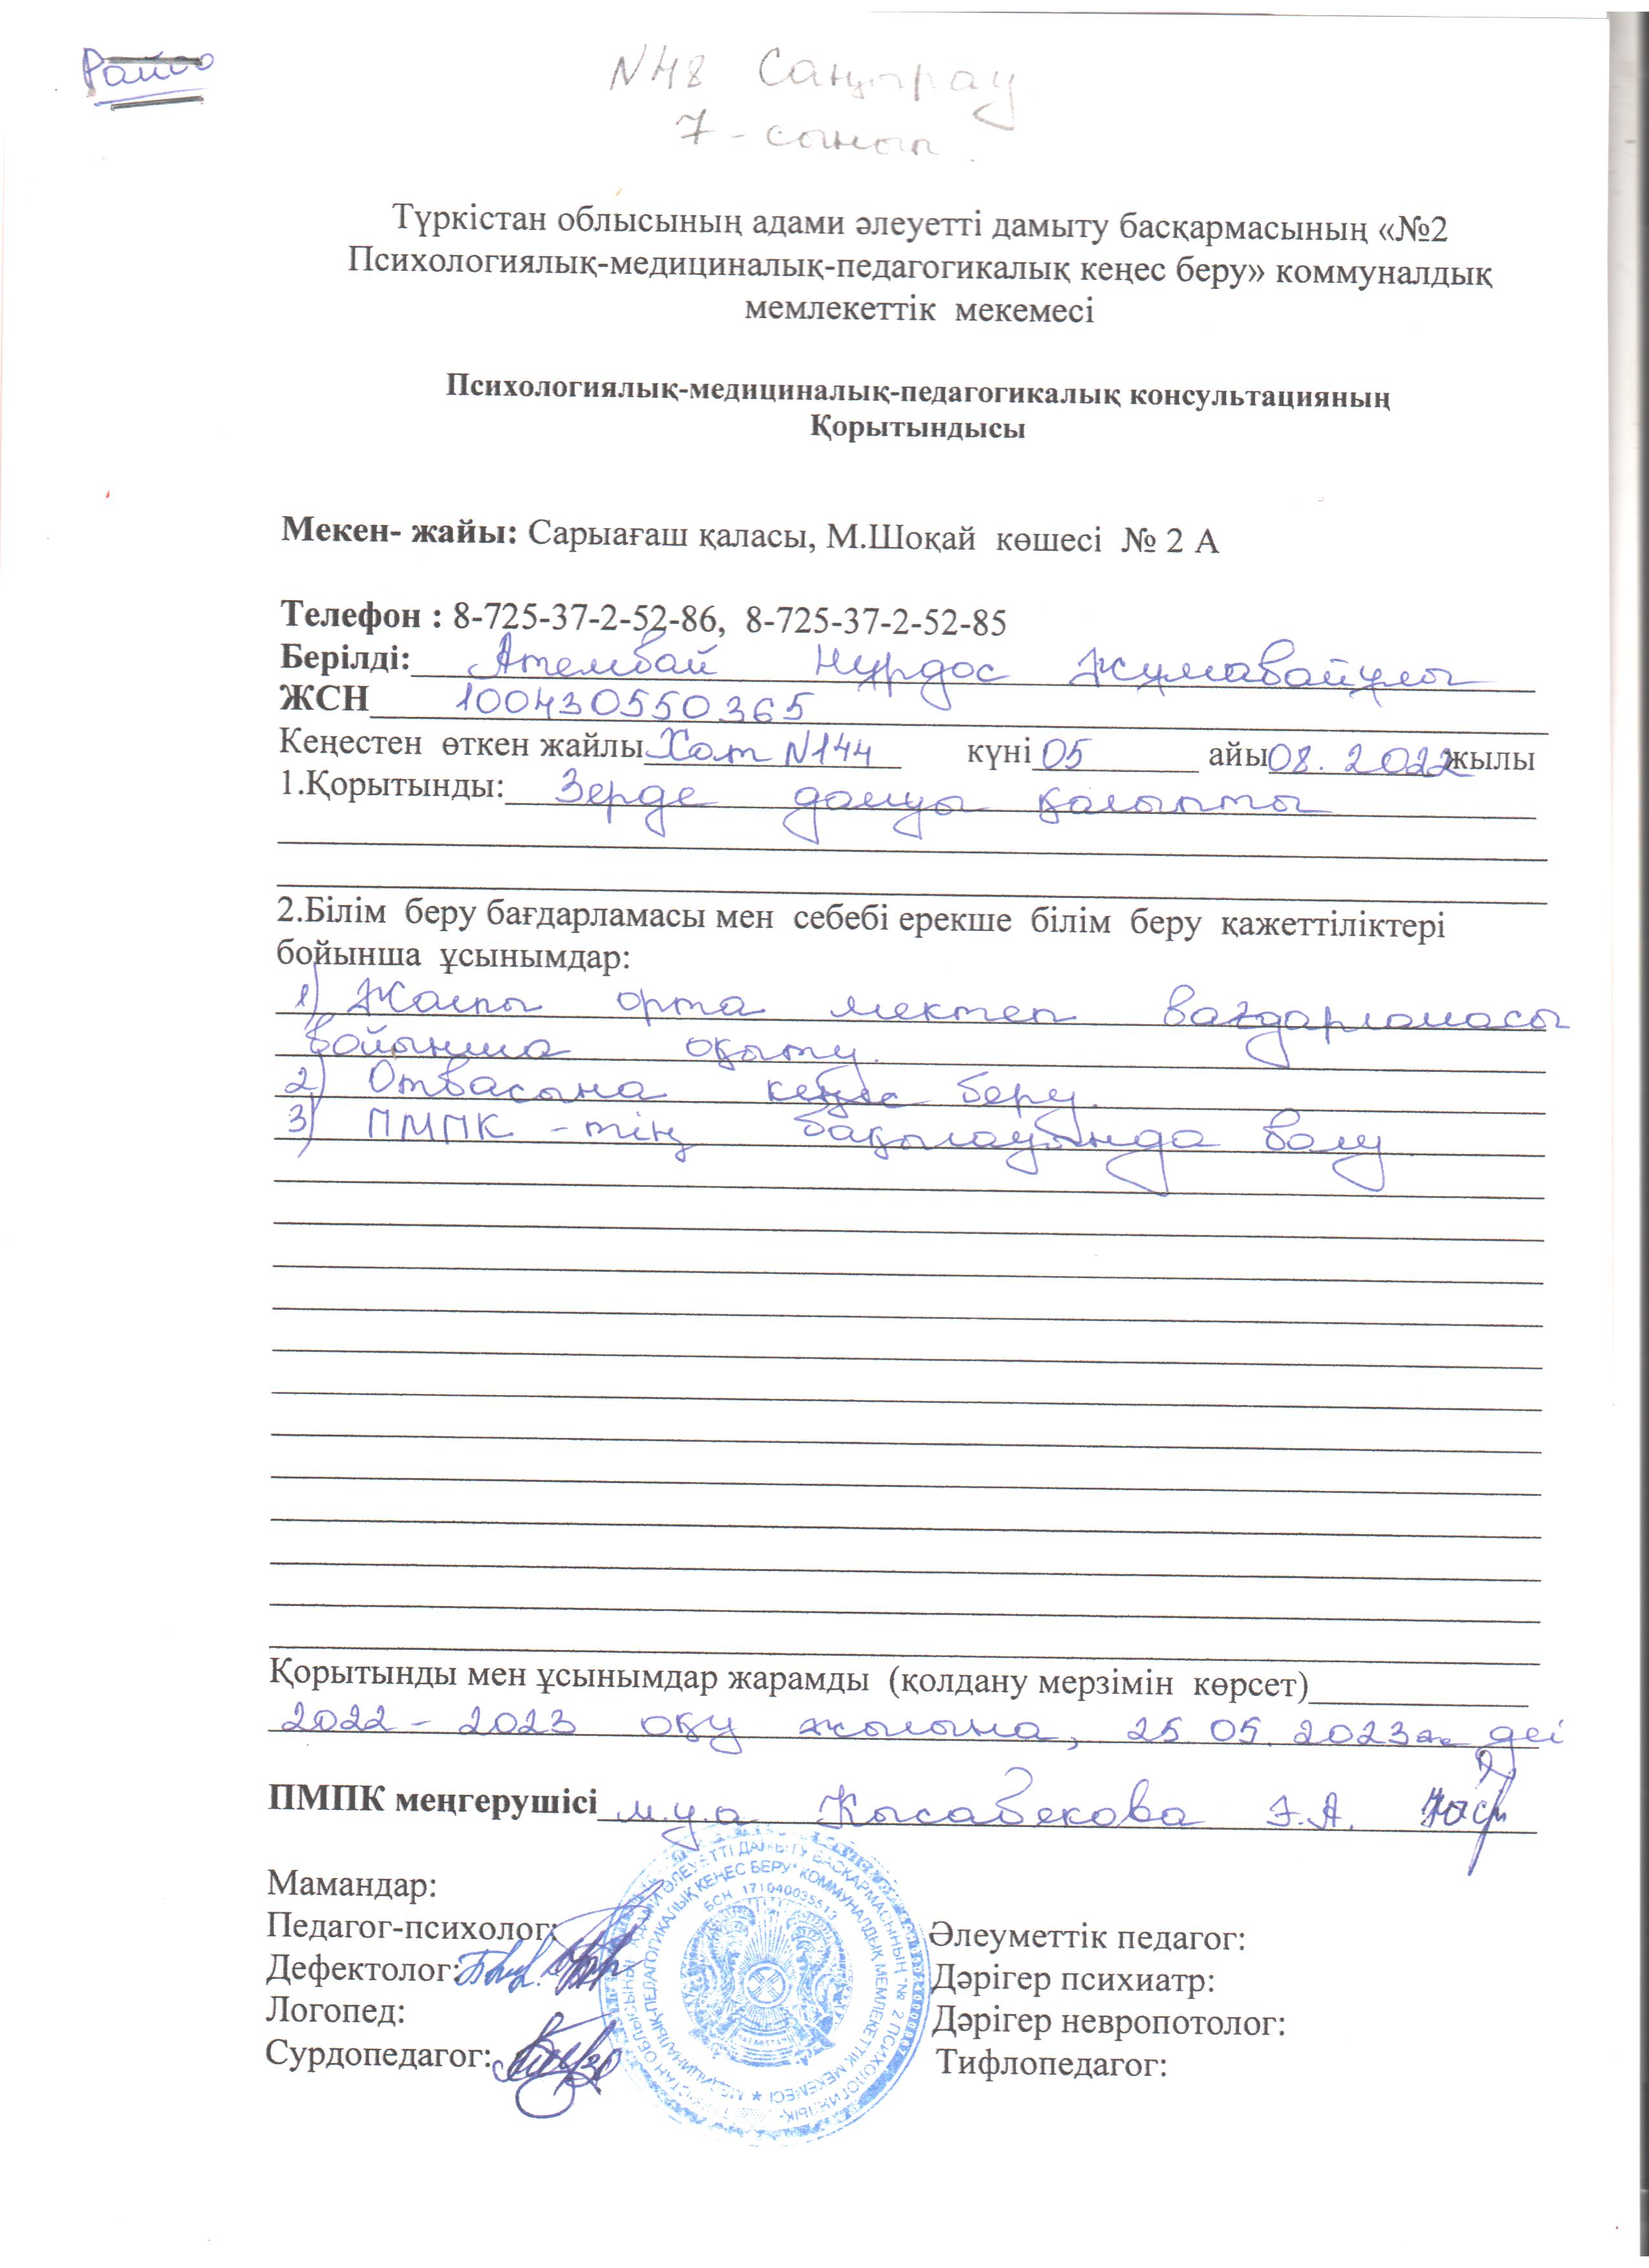 Райо
N48 Саңырау
7 - сынып.
Түркістан облысының адами әлеуетті дамыту басқармасының «№2
Психологиялық-медициналық-педагогикалық кеңес беру» коммуналдық
мемлекеттік мекемесі
Психологиялық-медициналық-педагогикалық консультацияның
Қорытындысы
Мекен- жайы: Сарыағаш қаласы, М.Шоқай көшесі № 2 А
Телефон : 8-725-37-2-52-86, 8-725-37-2-52-85
Берілді: Атембай Нұрдос Жұмабайұлы
ЖСН 100430550365
Кеңестен өткен жайлы Хат N144 күні 05 айы 08. 2022 жылы
1.Қорытынды: Зерде дамуы қалыпты
2.Білім беру бағдарламасы мен себебі ерекше білім беру қажеттіліктері
бойынша ұсынымдар:
1) Жалпы орта мектеп бағдарламасы
бойынша оқыту.
2) Отбасына кеңес беру.
3) ПМПК -тің бақылауында болу
Қорытынды мен ұсынымдар жарамды (қолдану мерзімін көрсет)
2022 - 2023 оқу жылына, 25 05. 2023ж дейі
ПМПК меңгерушісі м.у.а Кысабекова Э.А.
Мамандар:
Педагог-психолог: Әлеуметтік педагог:
Дефектолог: Дәрігер психиатр:
Логопед: Дәрігер невропотолог:
Сурдопедагог: Тифлопедагог:
БСН 171040035513